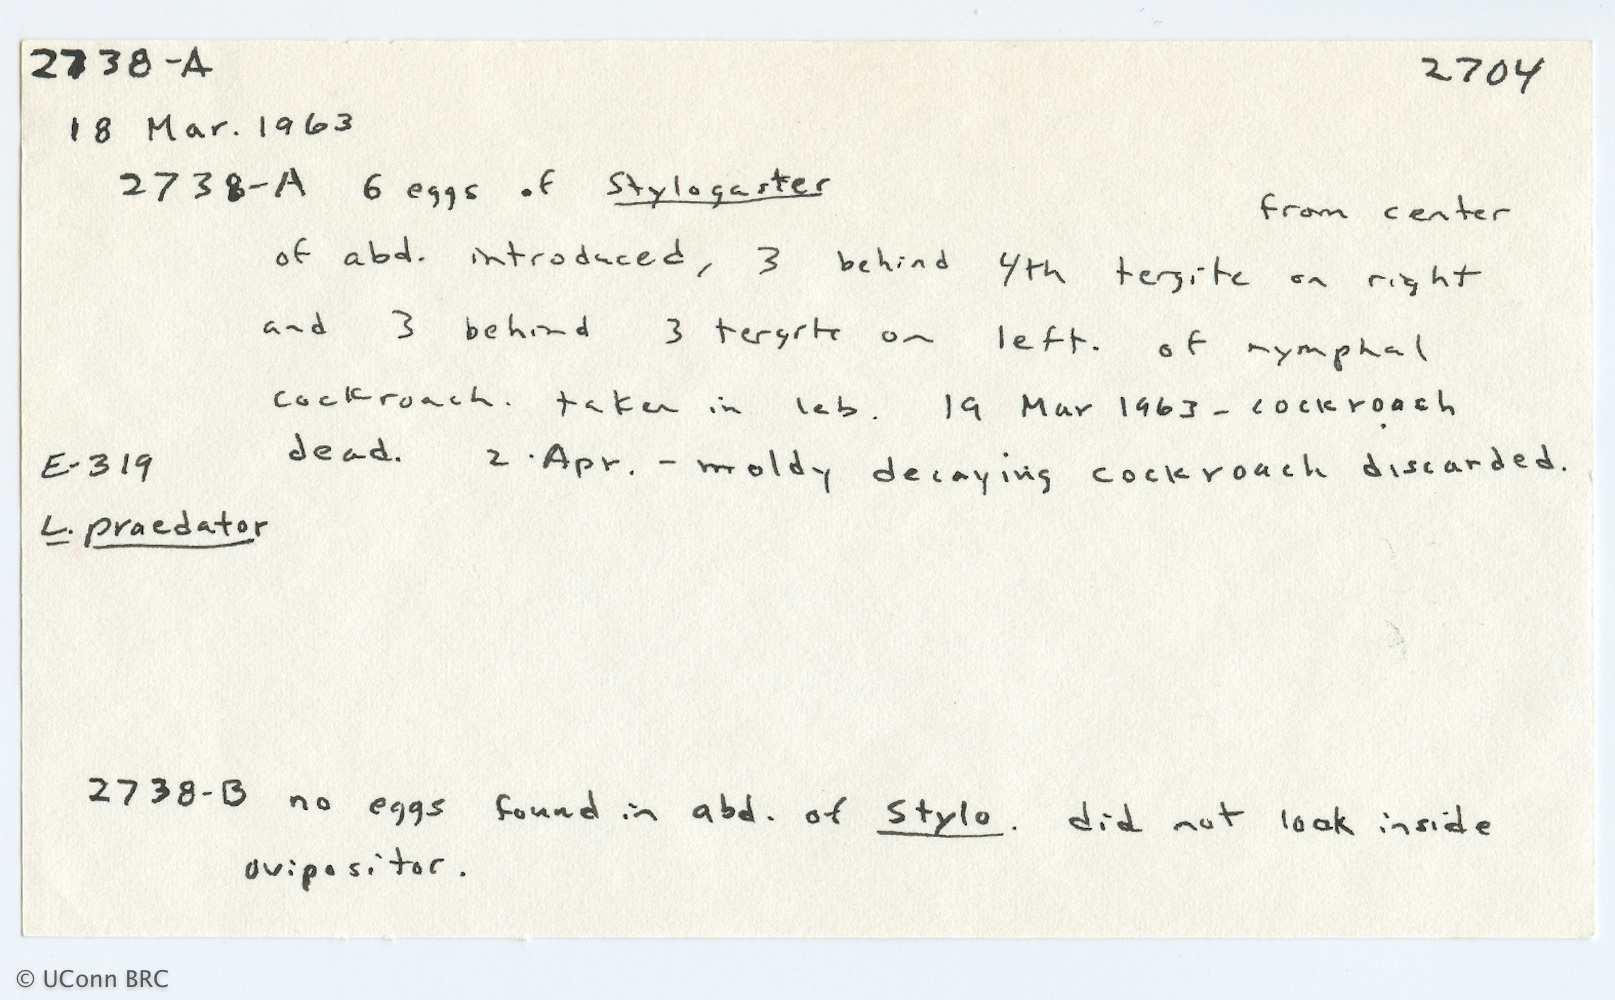 2738-A 2704
18 Mar. 1963
2738-A 6 eggs of Stylogaster from center
of abd. introduced, 3 behind 4th tergite on right
and 3 behind 3 tergite on left. of nymphal
cockroach. taken in lab. 19 Mar 1963 - cockroach
dead. 2 Apr. - moldy decaying cockroach discarded.
E-319
L. praedator
2738-B no eggs found in abd. of Stylo. did not look inside
ovipositor.
© UConn BRC